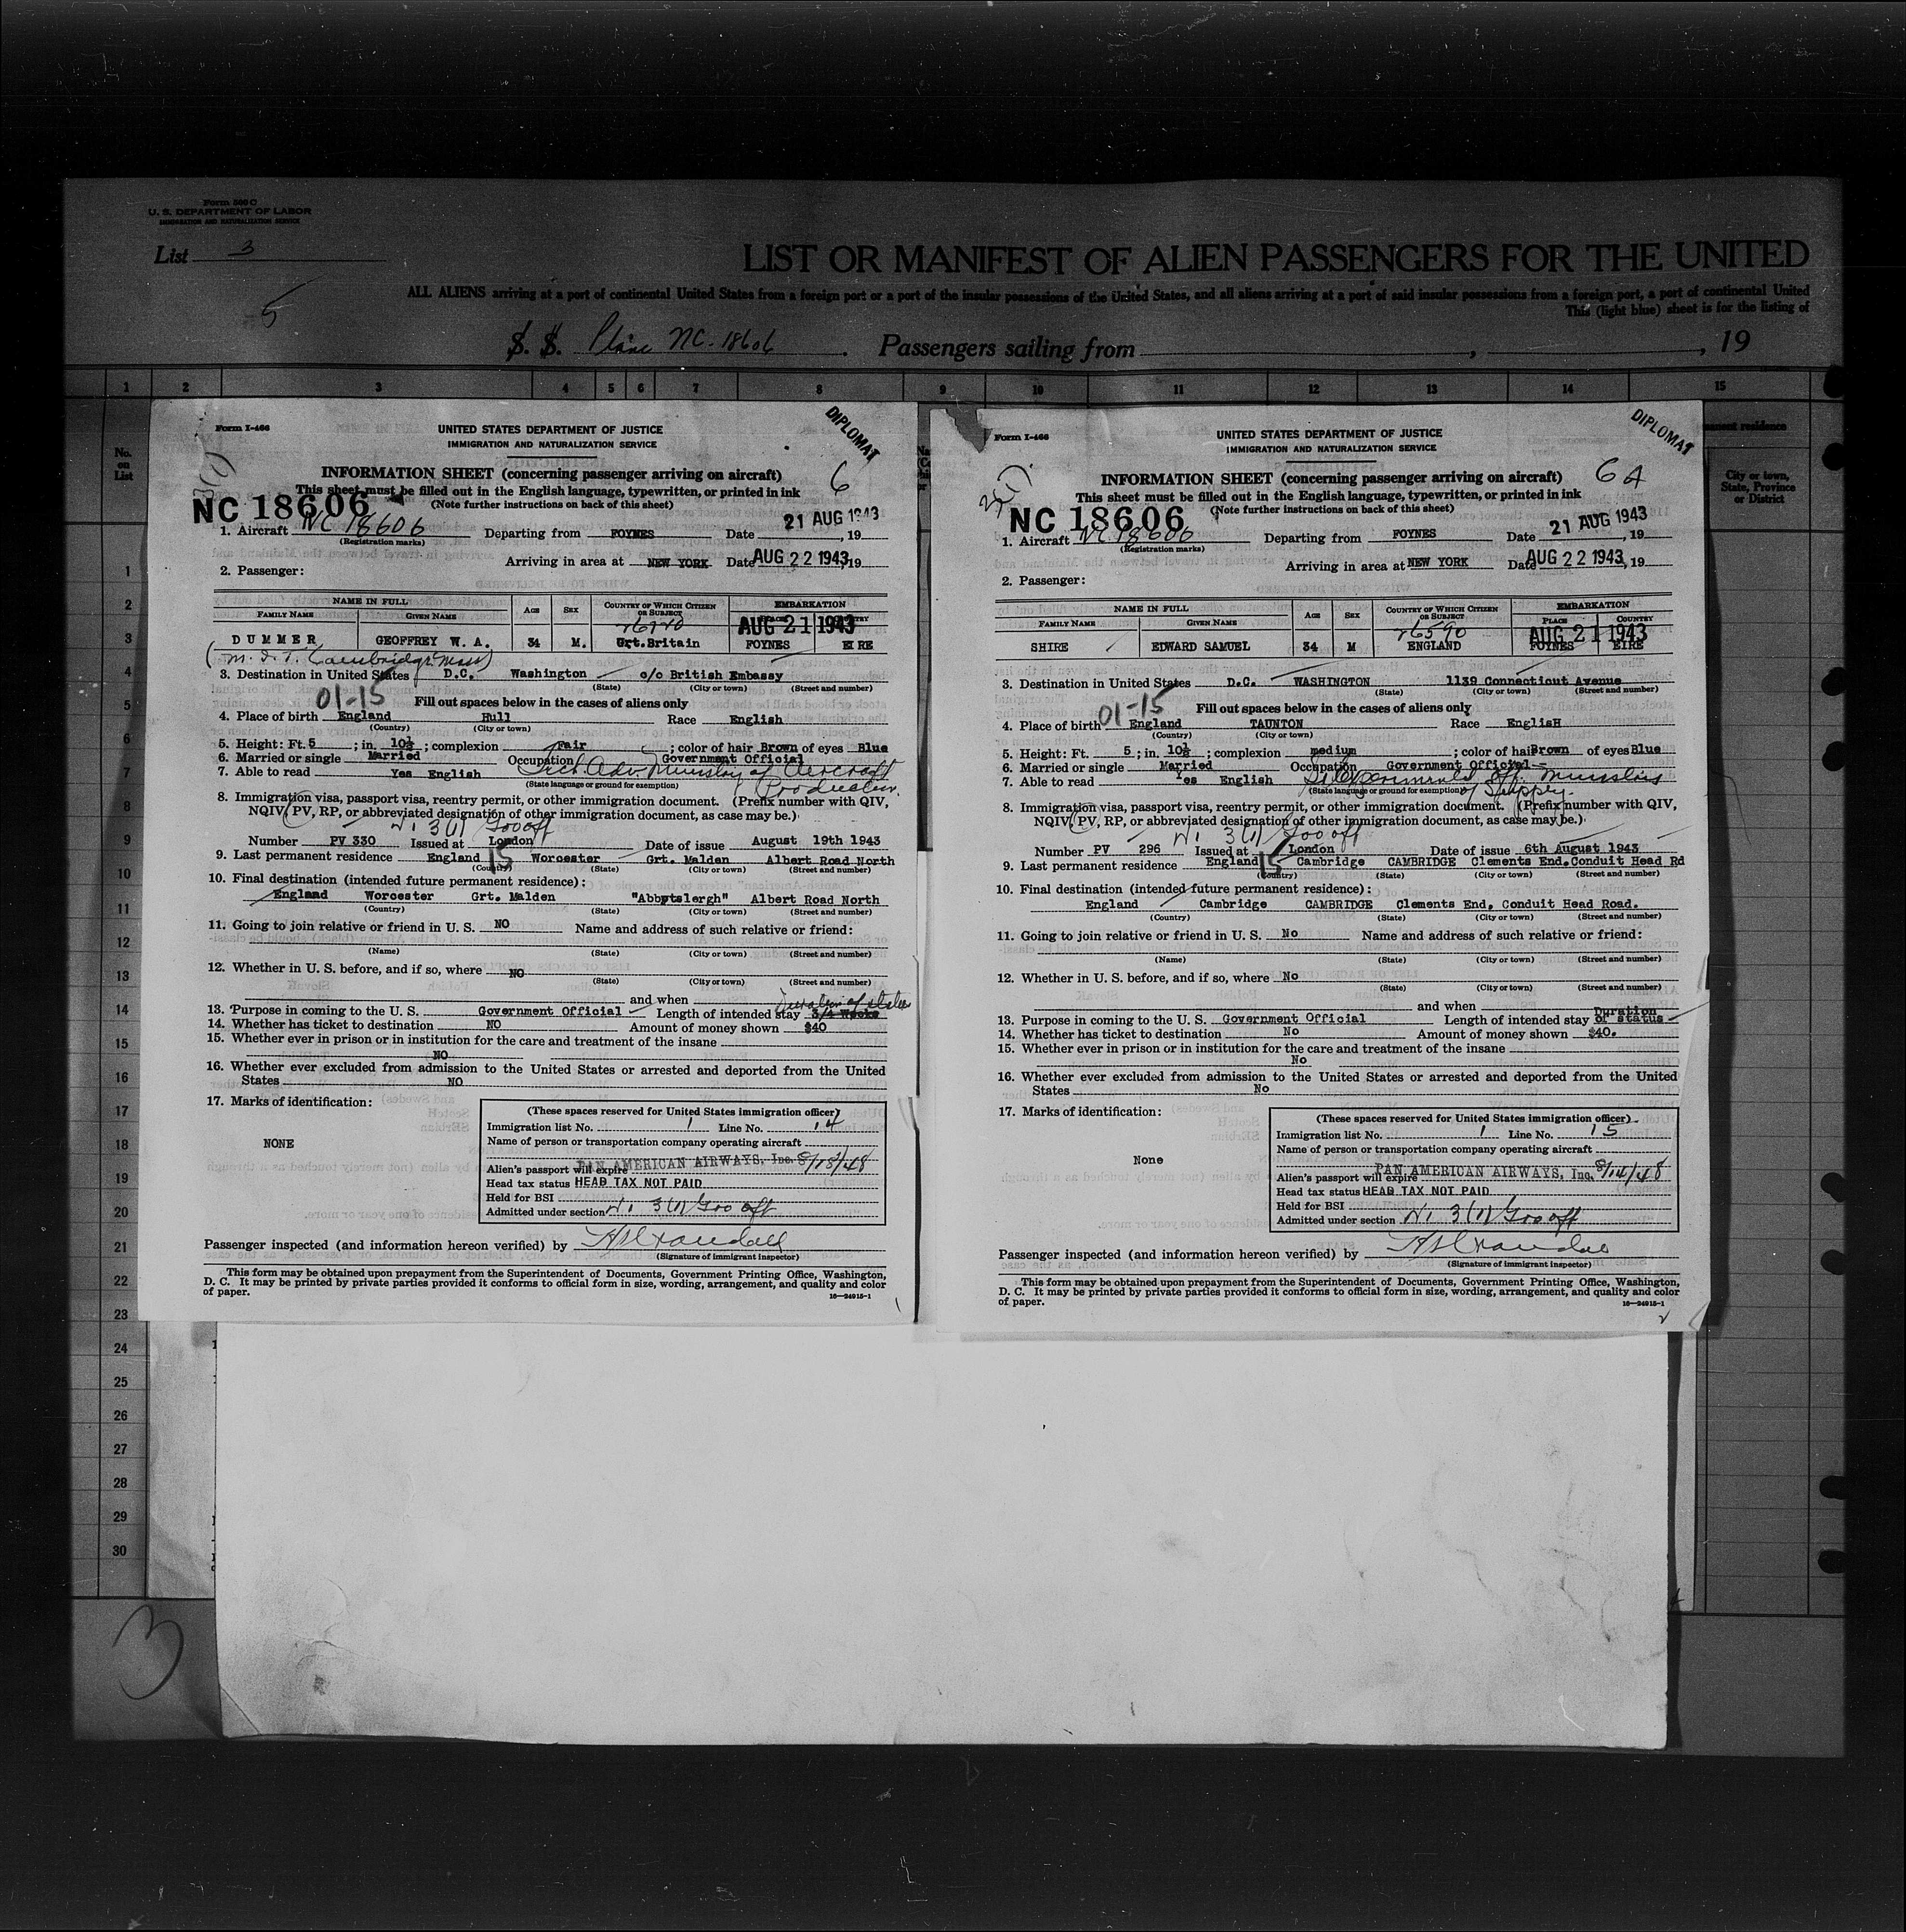 Form 500 C
U. S. DEPARTMENT OF LABOR
IMMIGRATION AND NATURALIZATION SERVICE
List 3
LIST OR MANIFEST OF ALIEN PASSENGERS FOR THE UNITED
ALL ALIENS arriving at a port of continental United States from a foreign port or a port of the insular possessions of the United States, and all aliens arriving at a port of said insular possessions from a foreign port, a port of continental United
This (light blue) sheet is for the listing of
5
S. S. Plane NC-18606 . Passengers sailing from , , 19
1 2 3 4 5 6 7 8 9 10 11 12 13 14 15
No. on List
City or town, State, Province or District
Form I-466
UNITED STATES DEPARTMENT OF JUSTICE
IMMIGRATION AND NATURALIZATION SERVICE
DIPLOMAT
3(1)
6
INFORMATION SHEET (concerning passenger arriving on aircraft)
This sheet must be filled out in the English language, typewritten, or printed in ink
(Note further instructions on back of this sheet)
NC 18606
1. Aircraft NC 18606 Departing from FOYNES Date 21 AUG 1943, 19
(Registration marks)
Arriving in area at NEW YORK Date AUG 22 1943, 19
2. Passenger:
NAME IN FULL AGE SEX COUNTRY OF WHICH CITIZEN OR SUBJECT EMBARKATION
FAMILY NAME GIVEN NAME PLACE COUNTRY
AUG 21 1943
DUMMER GEOFFREY W. A. 34 M. Grt.Britain FOYNES EIRE
(M. I. T. Cambridge Mass)
3. Destination in United States D.C. Washington c/o British Embassy
(State) (City or town) (Street and number)
01-15
Fill out spaces below in the cases of aliens only
4. Place of birth England Hull Race English
(Country) (City or town)
5. Height: Ft. 5 ; in. 10½ ; complexion Fair ; color of hair Brown of eyes Blue
6. Married or single Married Occupation Government Official
Tech. Adv. Ministry of Aircraft Production.
7. Able to read Yes English
(State language or ground for exemption)
8. Immigration visa, passport visa, reentry permit, or other immigration document. (Prefix number with QIV,
NQIV, PV, RP, or abbreviated designation of other immigration document, as case may be.)
3(1) Gov off
Number PV 330 Issued at London Date of issue August 19th 1943
9. Last permanent residence England 15 Worcester Grt. Malden Albert Road North
(Country) (State) (City or town) (Street and number)
10. Final destination (intended future permanent residence):
England Worcester Grt. Malden "Abbytslergh" Albert Road North
(Country) (State) (City or town) (Street and number)
11. Going to join relative or friend in U. S. NO Name and address of such relative or friend:
(Name) (State) (City or town) (Street and number)
12. Whether in U. S. before, and if so, where NO
(State) (City or town) (Street and number)
and when
Duration of status
13. Purpose in coming to the U. S. Government Official Length of intended stay 3/4 Weeks
14. Whether has ticket to destination NO Amount of money shown $40
15. Whether ever in prison or in institution for the care and treatment of the insane
NO
16. Whether ever excluded from admission to the United States or arrested and deported from the United
States NO
17. Marks of identification:
NONE
(These spaces reserved for United States immigration officer)
Immigration list No. 1 Line No. 14
Name of person or transportation company operating aircraft
PAN AMERICAN AIRWAYS, Inc.
Alien's passport will expire 8/18/48
Head tax status HEAD TAX NOT PAID
Held for BSI
Admitted under section 3(1) Gov off
Passenger inspected (and information hereon verified) by
(Signature of immigrant inspector)
This form may be obtained upon prepayment from the Superintendent of Documents, Government Printing Office, Washington,
D. C. It may be printed by private parties provided it conforms to official form in size, wording, arrangement, and quality and color
of paper.
16—24915-1
Form I-466
UNITED STATES DEPARTMENT OF JUSTICE
IMMIGRATION AND NATURALIZATION SERVICE
DIPLOMAT
3(1)
6A
INFORMATION SHEET (concerning passenger arriving on aircraft)
This sheet must be filled out in the English language, typewritten, or printed in ink
(Note further instructions on back of this sheet)
NC 18606
1. Aircraft NC 18606 Departing from FOYNES Date 21 AUG 1943, 19
(Registration marks)
Arriving in area at NEW YORK Date AUG 22 1943, 19
2. Passenger:
NAME IN FULL AGE SEX COUNTRY OF WHICH CITIZEN OR SUBJECT EMBARKATION
FAMILY NAME GIVEN NAME PLACE COUNTRY
26590 AUG 21 1943
SHIRE EDWARD SAMUEL 34 M ENGLAND FOYNES EIRE
3. Destination in United States D.C. WASHINGTON 1139 Connecticut Avenue
(State) (City or town) (Street and number)
01-15
Fill out spaces below in the cases of aliens only
4. Place of birth England TAUNTON Race EnglisH
(Country) (City or town)
5. Height: Ft. 5 ; in. 10½ ; complexion medium ; color of hair Brown of eyes Blue
6. Married or single Married Occupation Government Official
Experimental Off. Ministry of Supply.
7. Able to read Yes English
(State language or ground for exemption)
8. Immigration visa, passport visa, reentry permit, or other immigration document. (Prefix number with QIV,
NQIV, PV, RP, or abbreviated designation of other immigration document, as case may be.)
3(1) Gov off
Number PV 296 Issued at London Date of issue 6th August 1943
9. Last permanent residence England 15 Cambridge CAMBRIDGE Clements End.Conduit Head Rd
(Country) (State) (City or town) (Street and number)
10. Final destination (intended future permanent residence):
England Cambridge CAMBRIDGE Clements End, Conduit Head Road.
(Country) (State) (City or town) (Street and number)
11. Going to join relative or friend in U. S. No Name and address of such relative or friend:
(Name) (State) (City or town) (Street and number)
12. Whether in U. S. before, and if so, where No
(State) (City or town) (Street and number)
and when
Duration
13. Purpose in coming to the U. S. Government Official Length of intended stay of status
14. Whether has ticket to destination No Amount of money shown $40.
15. Whether ever in prison or in institution for the care and treatment of the insane
No
16. Whether ever excluded from admission to the United States or arrested and deported from the United
States No
17. Marks of identification:
None
(These spaces reserved for United States immigration officer)
Immigration list No. 1 Line No. 15
Name of person or transportation company operating aircraft
PAN AMERICAN AIRWAYS, Inc.
Alien's passport will expire 8/14/48
Head tax status HEAD TAX NOT PAID
Held for BSI
Admitted under section 3(1) Gov off
Passenger inspected (and information hereon verified) by
(Signature of immigrant inspector)
This form may be obtained upon prepayment from the Superintendent of Documents, Government Printing Office, Washington,
D. C. It may be printed by private parties provided it conforms to official form in size, wording, arrangement, and quality and color
of paper.
16—24915-1
1
2
3
4
5
6
7
8
9
10
11
12
13
14
15
16
17
18
19
20
21
22
23
24
25
26
27
28
29
30
3